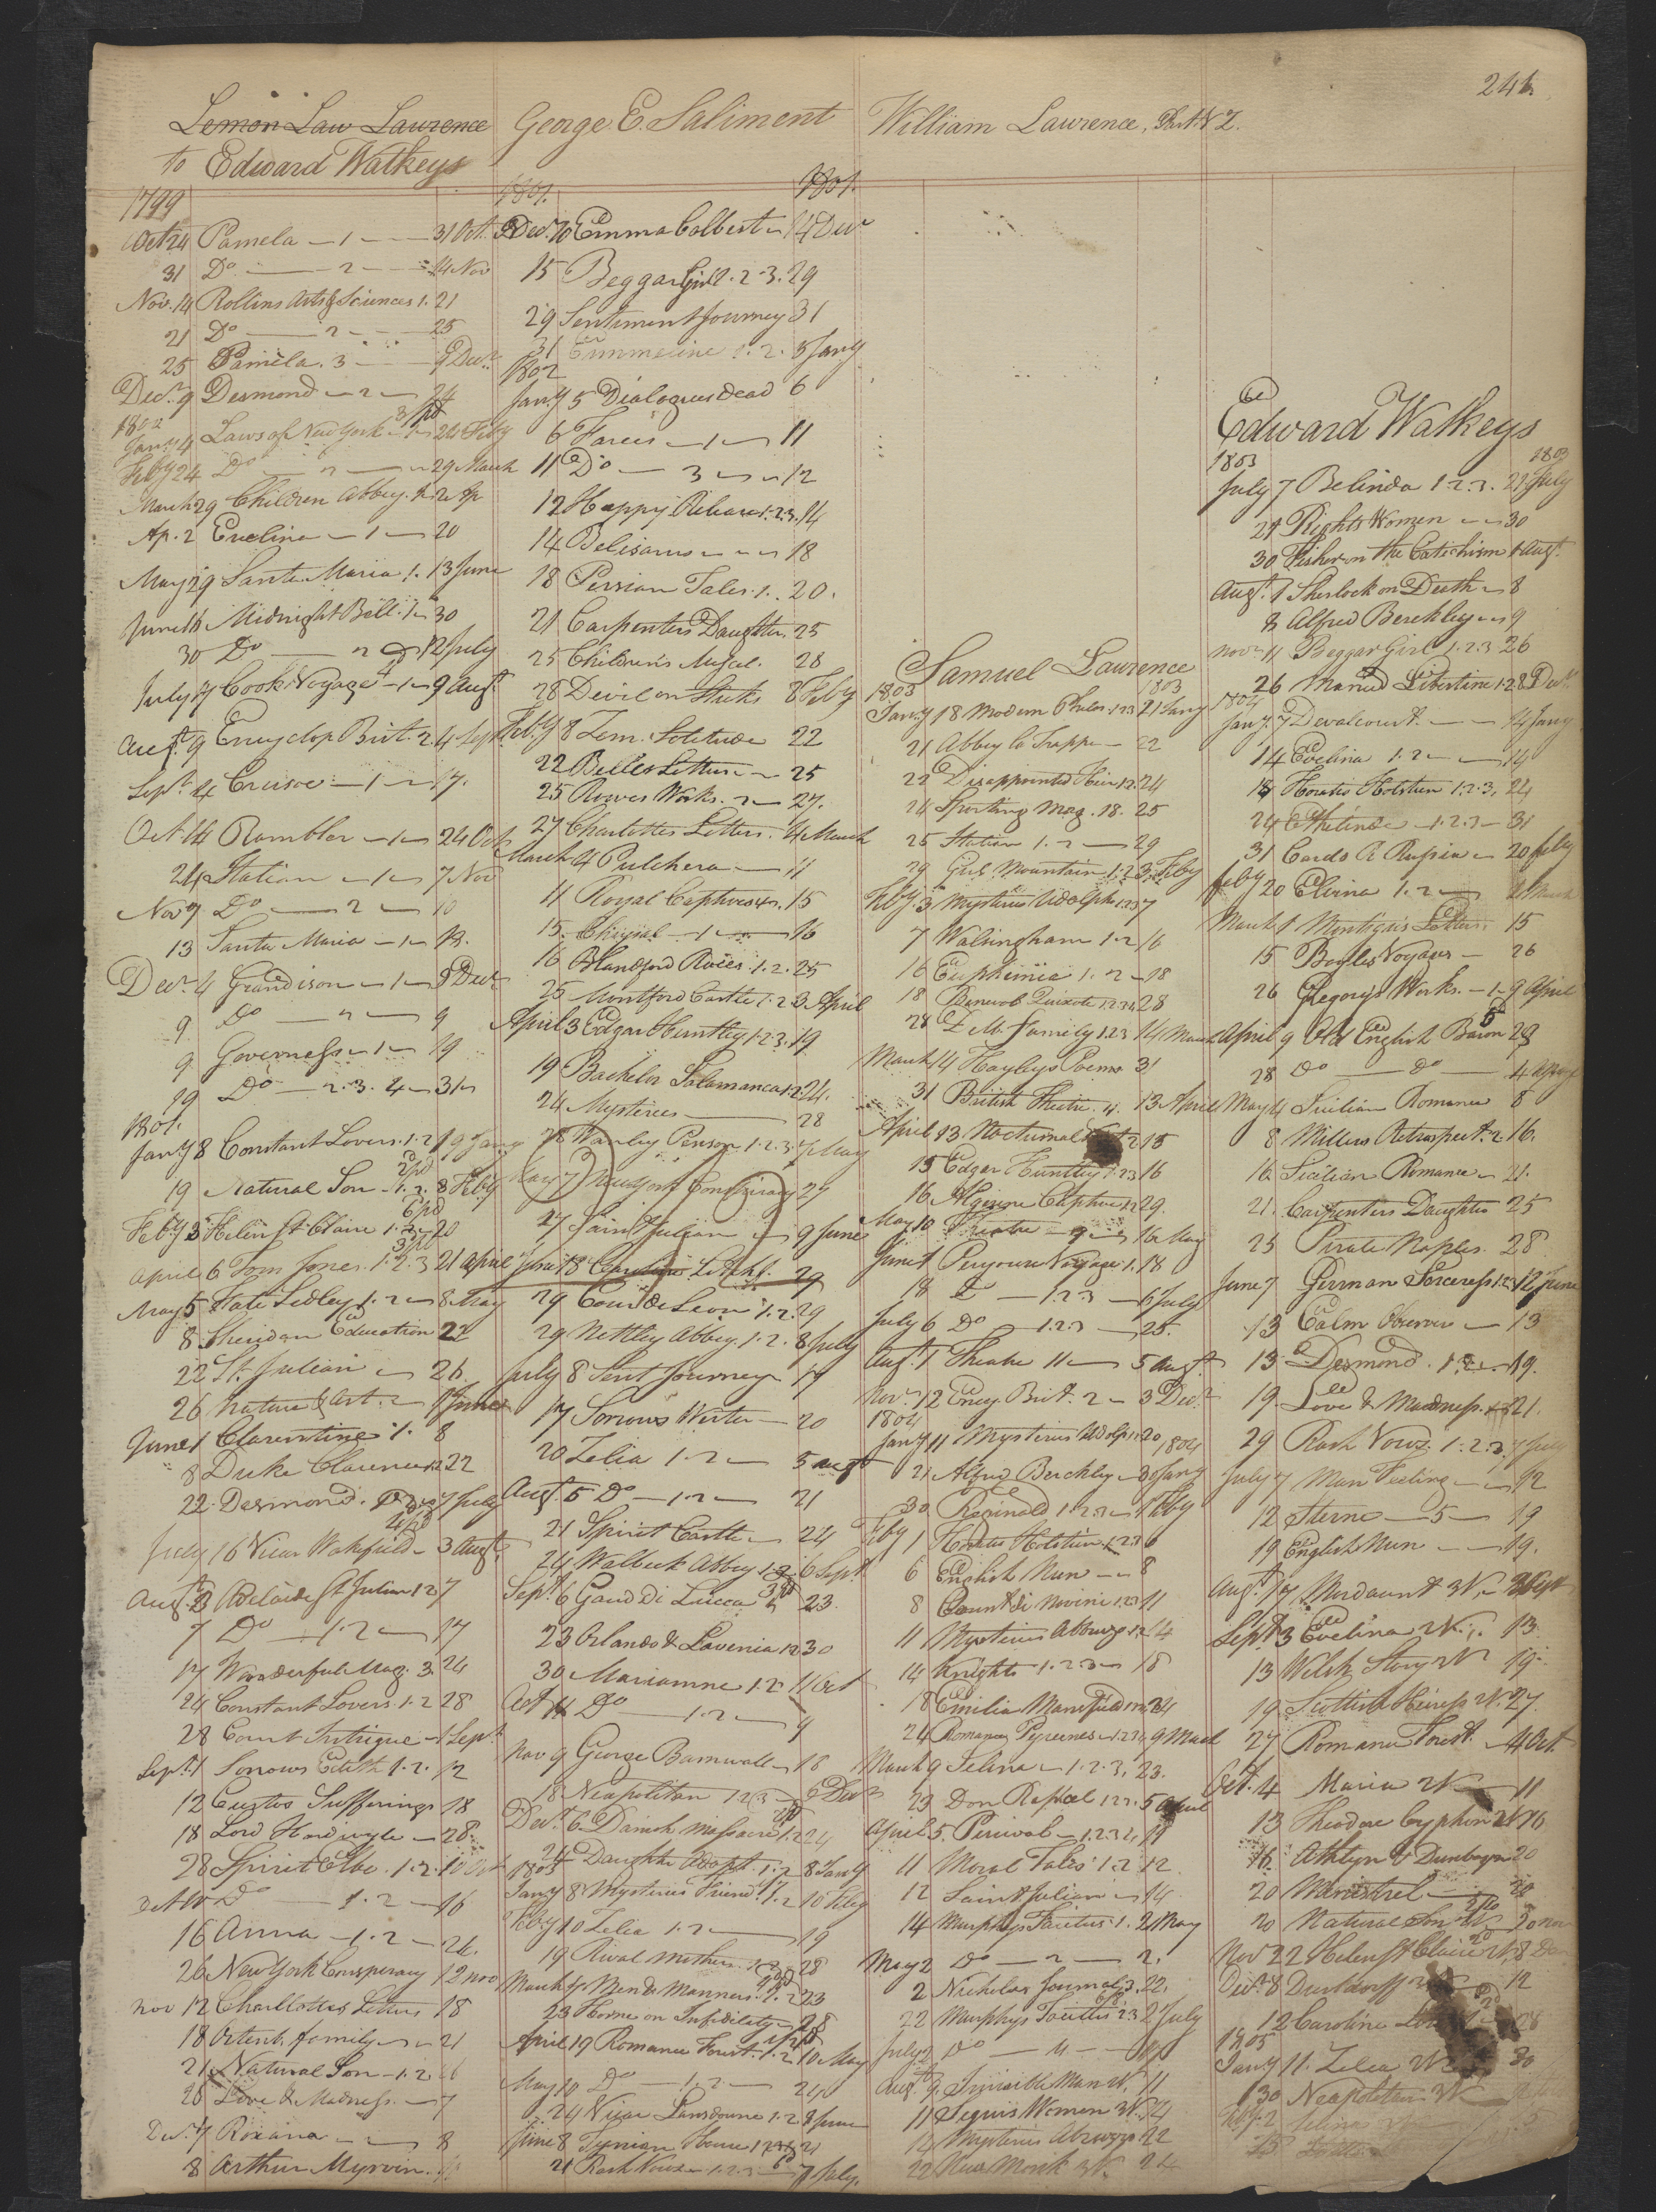 241
Lemon Law Lawrence
to Edward Watkeys
1799
Oct 24 Pamela — 1 — 31 Oct.
31 Do — 2 — 14 Nov
Nov. 14 Rollins Arts & Sciences 1. 21
21 Do — 2 — 25
25 Pamela. 3 — 9 Decr
Decr 9 Desmond — 2 — 24
1802
Jany 4 Laws of New York — 1 — 24 Feby
Feby 24 Do — 2 — 29 March
March 29 Children Abbey. 1. 2 Ap
Ap. 2 Evelina — 1 — 20
May 29 Santa Maria 1. 13 June
June 16 Midnight Bell. 1 — 30
30 Do — 2 — 12 July
July 17 Cooks Voyage — 1 — 9 Augt
Augt 9 Encyclop Brit. 2. 4 Sept.
Sept. 4 Crusoe — 1 — 17.
Oct. 14 Rambler — 1 — 24 Oct
24 Station — 1 — 7 Nov
Nov 7 Do — 2 — 10
13 Santa Maria — 1 — 18.
Decr 4 Grandison — 1 — 9 Decr
9 Do — 2 — 9
9 Governess — 1 — 19
19 Do — 2. 3. 4 — 31
1801.
Jany 8 Constant Lovers. 1. 2 19 Jany
19 Natural Son — 1. 2. 8 Feby
Feby 3 Helen St Claire 1. 2 — 20
April 6 Tom Jones. 1. 2. 3 21 April
May 5 Kate Sedley 1. 2 — 8. May
8 Sheridan Education 22
22 St. Julian — 26
26 Nature & Art. 2 — 1 June
June 1 Clarentine 1. 8
8 Duke Clarence 1.2 22
22. Desmond. 1. 2. 3 7 July
July 16 Vicar Wakefield — 3 Augt
Augt 3 Adelaide St Julian 1 2 7
7 Do — 1. 2 — 17
17 Wonderful Mag. 3. 24
24 Constant Lovers. 1. 2 28
28 Court Intrigue — 1 Sept.
Sept. 1 Sorrows Edith 1. 2. 12
12 Curtis Sufferings 18
18 Lord Hardivyle — 28.
28 Spirit Elbe. 1. 2. 10 Oct
Oct 10 Do — 1. 2 — 16
16 Anna — 1. 2 — 26.
26 New York Conspiracy 12 nov
nov 12 Charllottes Letters 18
18 Ortenb. family — 21
21 Natural Son — 1. 2. 26
26 Love & Madness. — 7
Decr 7 Roxana — 8
8 Arthur Myrvin.
George E. Saliment
1801. 1801.
Decr 10 Emma Colbert — 14 Decr
15 Beggar Girl 1. 2. 3. 29
29 Sentiment Journey 31
31 Emmeline 1. 2. 5 Jany
1802
Jany 5 Dialogues Dead 6
6 Farces — 1 — 11
11 Do — 3 — 12
12 Happy Release 1. 2. 3. 14
14 Belisarius — 18
18 Persian Tales. 1. 20.
21 Carpenters Daughter. 25
25 Children's Miscel. 28
28 Devil on Sticks 8 Feby
Feby 8 Zem. Solitude 22
22 Belles Letters — 25
25 Rowes Works. 2 — 27.
27 Charlottes Letters. 4 March
March 4 Pulchera — 11
11 Royal Captives 4. 15
15. Chigial — 1 — 16
16 Blandford Races. 1. 2. 25
25 Montford Castle 1. 2 3 April
April 3 Edgar Huntley 1. 2. 3. 19
19 Bachelor Salamanca 1. 2. 24.
24 Mysteries — 28
28 Wanley Penson 1. 2. 3. 7 May
May 7 New York Conspiracy 27
27 Saint Julian — 9 June
June 18 Caroline Litchf. 29
29 Coeur de Leon 1. 2. 29
29 Nettley Abbey. 1. 2. 8 July
July 8 Sent Journey 17
17 Sorrows Werter — 20
20 Zelia 1. 2 — 5 augt
Augt 5 Do — 1. 2 — 21
21 Spirit Castle — 24
24 Walbeck Abbey 1. 2. 6 Sept.
Sept. 6 Gaud Di Lucca 23.
23 Orlando & Lavenia 1 2 30
30 Mariamne 1. 2 4 Oct
Oct 4 Do — 1. 2 — 9
Nov 9 George Barnwell — 18
18 Neapolitan 1 2 3 — 6 Decr
Decr 6 Danish Massacre 1. 2 24
24 Daughter Adopt. 1. 2 8 Jany
1803
Jany 8 Mysterius Friend. 1. 2 10 Feby
Feby 10 Zelia 1. 2 — 19
19 Rival Mothers 1. 2 28
March 17 Men & Manners. 1. 2 23
23 Horne on Infidelity — 28
April 19 Romance Forest. 1. 2. 10 May
May 10 Do — 1. 2 — 24
24 Vicar Lansdowne 1. 2 8 June
June 8 Tynian House 1 2 21
21 Rash Vows — 1. 2. 3 — 7 July.
William Lawrence, Part N 2.
Samuel Lawrence
1803 1803
Jany 18 Modern Philos. 1 2 3 21 Jany
21 Abbey la Trappe — 22
22 Disappointed Heir 1 2. 24
24 Sporting Mag. 18. 25
25 Station 1. 2 — 29
29 Gris Mountain 1. 2. 3 Feby
Feby 3 Mysteries Udolpho 1 2 3 7
7 Walsingham 1. 2 16
16 Euphemia 1. 2 — 18
18 Benevob Quixote 1. 2 3 4 28
28 D. M. Family 1 2 3 14 March
March 14 Hayleys Poems 31
31 British Theatre. 4. 13 April
April 13 Nocturnal 2 15
15 Edgar Huntley 1. 2 3 16
16 Algerine Captive 1 2 29.
May 10 Theatre — 9 — 16 May
June 1 Perouse Voyage 1. 18
18 Do — 1. 2 3 — 6 July
July 6 Do — 1. 2. 3 — 25.
Augt. 1 Theatre 11 — 5 augt
Novr 12 Ency. Brit. 2 — 3 Decr
1804
Jany 11 Mysterius Udolp. 1. 20
1804
21 Alfred Berckley — 30 Jany
30 Reginald 1. 2. 3 — 1 Feby
Feby 1 Horatio Holstein 1. 2 3 6
6 English Nun — 8
8 Count di Novini 1 2 3 11
11 Mysterius Abruzzo 1. 2 14
14 Knights 1. 2 3 — 18
18 Emilia Mansfield 24
24 Romance Pyrenees — 1. 2 3 4 9 March
March 9 Selina — 1. 2. 3. 23.
23 Don Raphael 1 2 3. 5 April
April 5. Percival — 1. 2 3 4 11
11 Moral Tales 1. 2 12
12 Saint Julian — 14
14 Murphys Tacitus. 1. 2 May
May 2 Do — 2 — 2.
2 Nicholas Journal 3. 22.
22 Murphys Tacitus 2. 3 2 July
July 2 Do — 4 —
Augt 9. Invisible Man 2V. 11
11 Seguis Women 3V. 14
14 Mysterius Abruzzo 22
22 New Monk 3V. 24
Edward Watkeys
1803 1803
July 7 Belinda 1. 2. 3. 21 July
21 Rights Women — 30
30 Fisher on the Catichism 1 augt.
Augt. 1 Sherlock on Death — 8
8 Alfred Berckley — 9
novr 11 Beggar Girl 1. 2. 3 26
26 Married Libertine 1. 2 8 Decr
1804
Jany. 7 Devalcourt. — 14 Jany
14 Evelina 1. 2 — 14
14 Horatio Holstein 1. 2. 3. 24
24 Ethelinde — 1. 2. 3 — 31
31 Cards A Rupin — 20 Feby
Feby 20 Elvina 1. 2 — March
March 1 Montigus Letters. 15
15 Bayles Voyages — 26
26 Gregorys Works. — 1 — 9 April
April 9 Old English Baron 28
28 Do — Do — 4
May 4 Sicilian Romance 8
8 Millers Retrospect. 2. 16.
16. Sicilian Romance — 21.
21. Carpenters Daughter 25
25 Pirate Naples. 28
June 7 German Sorceress 1. 2. 12 June
13 Calm Observer — 13
13. Desmond. 1. 2. 19.
19. Love & Maddness. 21.
29 Rash Vows. 1. 2. 3. 7 July
July 7 Man Feeling — 12
12 Sterne — 5 — 19
19 English Nun — 19.
Augt. 17 Mordaunt 3V. Sept
Sept 3 Evelina 2V. 13
13 Welsh Story 2V 19
19 Scottish Heiress 2V. 27
27 Romance Forest. — 4 Oct.
Oct. 4 Maria 2V — 11
13 Theodore Cyphon 2V 16
16. Athlyn & Dunbayn 20
20 Minstrel — 20
20 Natural Son 2V — 20 nov
Nov 22 Helen St Claire 2V. 8 Dec
Decr. 8 Dusseldorff 12
12 Caroline 28
1805
Jany 11. Zelea 2V 30
30 Neapolitan 3V
Feby. 2 Selina 5